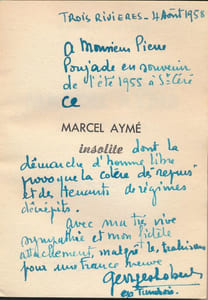 TROIS RIVIERES - 4 Août 1958
à Monsieur Pierre
Poujade en souvenir
de l'été 1955 à St Céré
ce
MARCEL AYMÉ
insolite dont la
démarche d'homme libre
provoque la colère des
et de tenants de régimes
décrépits.
avec ma très vive
sympathie et mon fidèle
attachement, malgré les trahisons
pour une France neuve